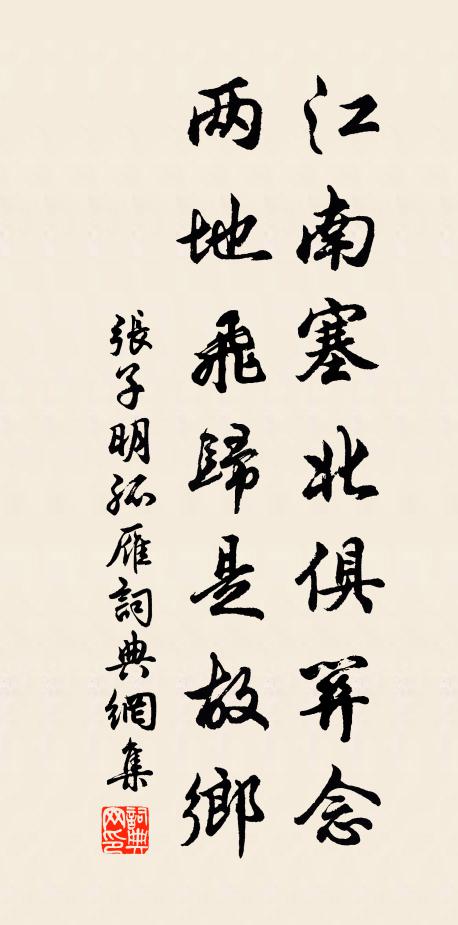 江南塞北俱關念
两地飛歸是故鄉
張子明孤雁詞典網集
詞典网印